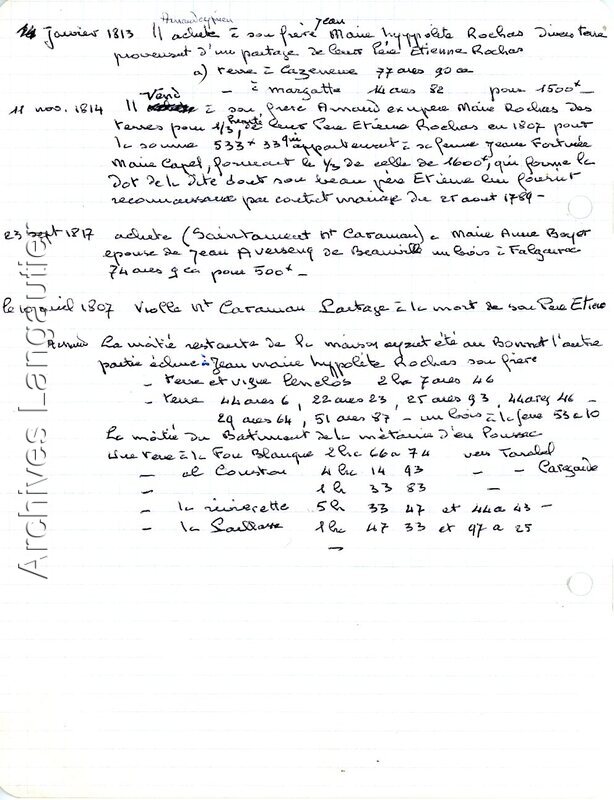 Jean
14 Janvier 1813 Il achete à son frère Marie hyppolite Rochas divers terre
provenant d'un partage de leur Père Etienne Rochas
a) terre à Cazeneuve 77 ares 90 ca
— à margatte 14 ares 82 pour 1500 —
Vend
11 nov. 1814 Il à son frère Arnaud exupère Marie Rochas des
terres pour 1/3, leur Père Etienne Rochas en 1807 pour
la somme 533 33 appartenant à sa femme Jeane Fortunée
Marie Capel, formant le 1/3 de celle de 1600, qui forme la
dot de la dite dont son beau père Etienne
reconnaissance par contrat mariage du 25 aout 1789 —
23 sept 1817 achete (Saintamont Nt Caraman) a Marie Anne Boyer
epouse de Jean Averseng de Beauville un bois à Falgairac
74 ares 9 ca pour 500 —
le avril 1807 Violle Nt Caraman Partage à la mort de son Père Etienne
Arnaud La moitié restante de la maison ayant été au Bonnet l'autre
partie échue à Jean marie hyppolite Rochas son frère
— terre et vigne lenclos 2 ha 7 ares 46
— terre 44 ares 6, 22 ares 23, 25 ares 93, 44 ares 46 —
29 ares 64, 51 ares 87 — un bois à la 53 a 10
La moitié du Batiment de la métairie d'en Poussac
une terre à la Fon Blanque 2 ha 66 a 74 vers Tarabel
— al Coustou 4 ha 14 93 — — Caragoude
— 1 h 33 83 —
— la 5 h 33 47 et 44 a 43 —
— la Paillasse 1 ha 47 33 et 97 a 25
—
Archives Langautier